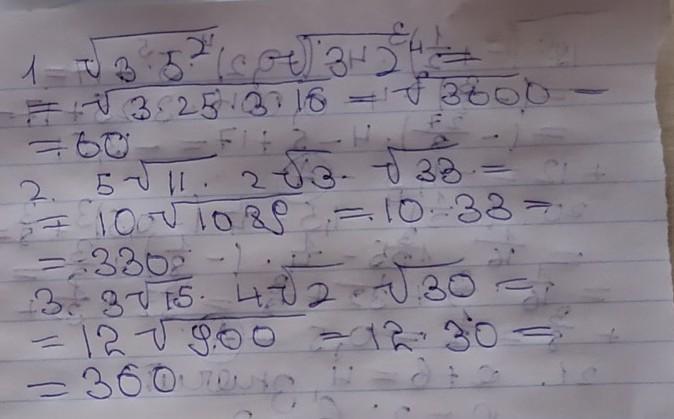 1. √3·5² · √3·2⁴ =
= √3·25·3·16 = √3600 =
= 60
2. 5√11 · 2√3 · √33 =
= 10√1089 = 10·33 =
= 330
3. 3√15 · 4√2 · √30 =
= 12√900 = 12·30 =
= 360